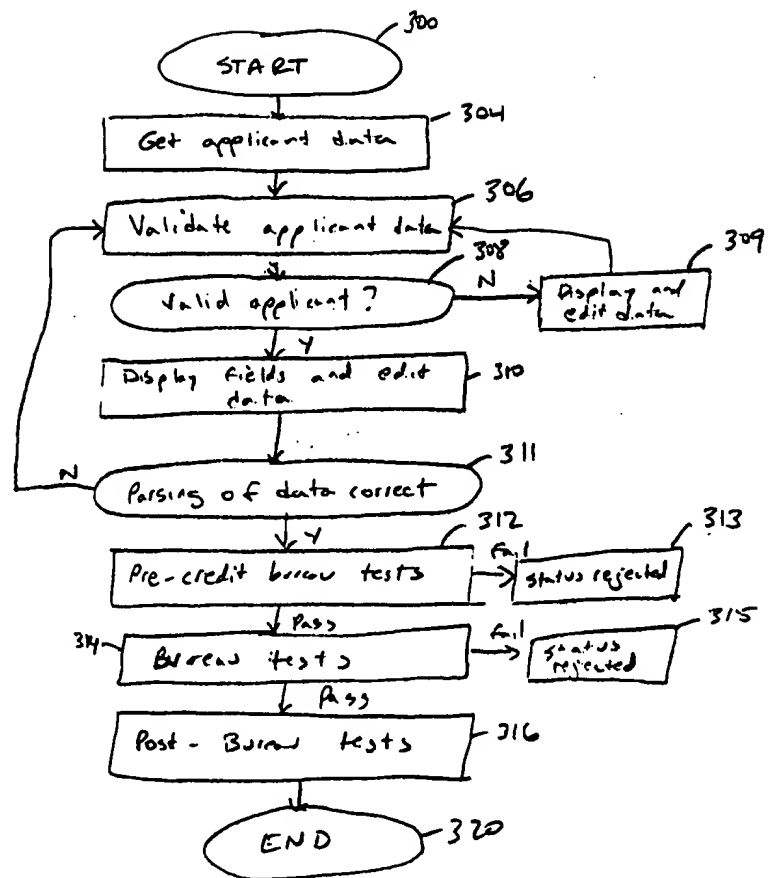 300
START
304
Get applicant data
306
Validate applicant data
308
Valid applicant?
N
309
Display and
edit data
Y
Display fields and edit
data
310
311
N
Parsing of data correct
Y
312
Pre-credit bureau tests
Fail
313
Status rejected
Pass
314
Bureau tests
Fail
315
status
rejected
Pass
Post-Bureau tests
316
END
320